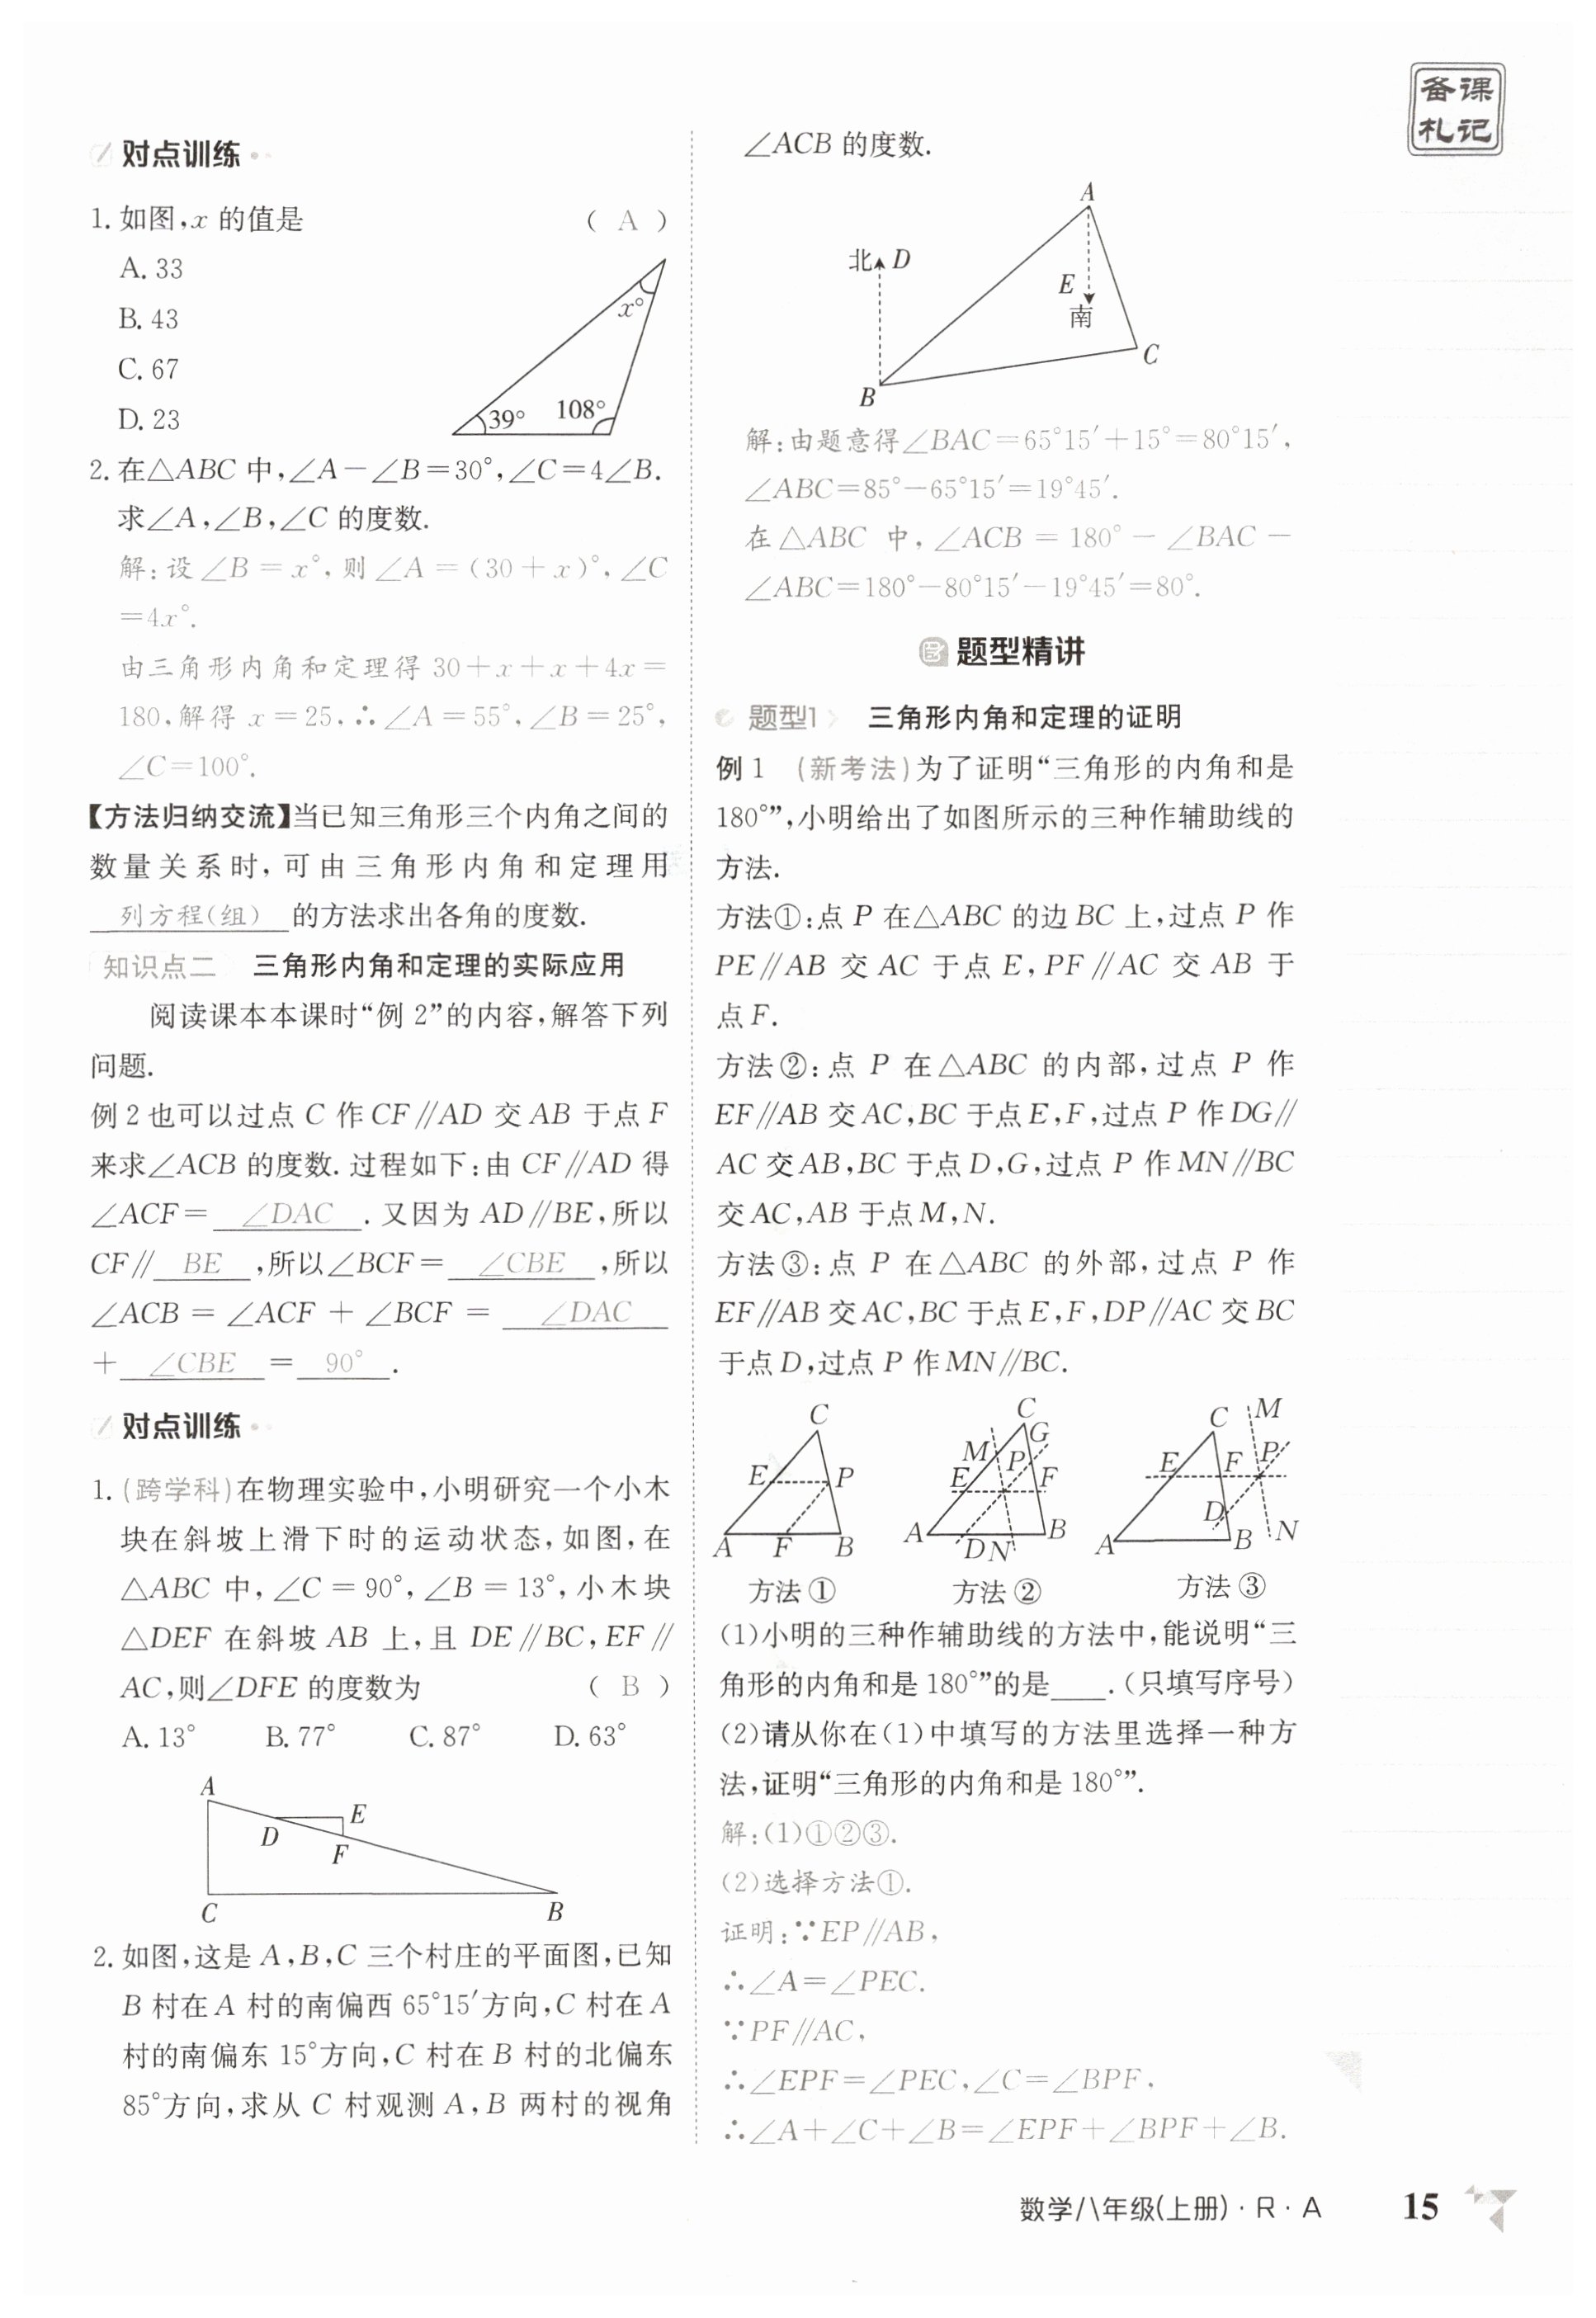 备课
札记
对点训练
1. 如图,x 的值是 ( A )
A. 33
B. 43
C. 67
D. 23
x°
39° 108°
2. 在△ABC 中,∠A-∠B=30°,∠C=4∠B.
求∠A,∠B,∠C 的度数.
解:设∠B=x°,则∠A=(30+x)°,∠C
=4x°.
由三角形内角和定理得 30+x+x+4x=
180,解得 x=25,∴∠A=55°,∠B=25°,
∠C=100°.
【方法归纳交流】当已知三角形三个内角之间的
数量关系时,可由三角形内角和定理用
列方程(组) 的方法求出各角的度数.
知识点二 三角形内角和定理的实际应用
阅读课本本课时“例 2”的内容,解答下列
问题.
例 2 也可以过点 C 作 CF∥AD 交 AB 于点 F
来求∠ACB 的度数. 过程如下:由 CF∥AD 得
∠ACF= ∠DAC . 又因为 AD∥BE,所以
CF∥ BE ,所以∠BCF= ∠CBE ,所以
∠ACB = ∠ACF + ∠BCF = ∠DAC
+ ∠CBE = 90° .
对点训练
1. (跨学科)在物理实验中,小明研究一个小木
块在斜坡上滑下时的运动状态,如图,在
△ABC 中,∠C=90°,∠B=13°,小木块
△DEF 在斜坡 AB 上,且 DE∥BC,EF∥
AC,则∠DFE 的度数为 ( B )
A. 13° B. 77° C. 87° D. 63°
A
E
D
F
C B
2. 如图,这是 A,B,C 三个村庄的平面图,已知
B 村在 A 村的南偏西 65°15′方向,C 村在 A
村的南偏东 15°方向,C 村在 B 村的北偏东
85°方向,求从 C 村观测 A,B 两村的视角
∠ACB 的度数.
A
北 D
E
南
C
B
解:由题意得∠BAC=65°15′+15°=80°15′,
∠ABC=85°-65°15′=19°45′.
在△ABC 中,∠ACB = 180° - ∠BAC -
∠ABC=180°-80°15′-19°45′=80°.
题型精讲
题型1 三角形内角和定理的证明
例 1 (新考法)为了证明“三角形的内角和是
180°”,小明给出了如图所示的三种作辅助线的
方法.
方法①:点 P 在△ABC 的边 BC 上,过点 P 作
PE∥AB 交 AC 于点 E,PF∥AC 交 AB 于
点 F.
方法②:点 P 在△ABC 的内部,过点 P 作
EF∥AB 交 AC,BC 于点 E,F,过点 P 作 DG∥
AC 交 AB,BC 于点 D,G,过点 P 作 MN∥BC
交 AC,AB 于点 M,N.
方法③:点 P 在△ABC 的外部,过点 P 作
EF∥AB 交 AC,BC 于点 E,F,DP∥AC 交 BC
于点 D,过点 P 作 MN∥BC.
C
E P
A F B
方法①
C
G
M P
E F
A B
D N
方法②
C M
E F P
D
A B N
方法③
(1)小明的三种作辅助线的方法中,能说明“三
角形的内角和是 180°”的是____.(只填写序号)
(2)请从你在(1)中填写的方法里选择一种方
法,证明“三角形的内角和是 180°”.
解:(1)①②③.
(2)选择方法①.
证明:∵EP∥AB,
∴∠A=∠PEC.
∵PF∥AC,
∴∠EPF=∠PEC,∠C=∠BPF,
∴∠A+∠C+∠B=∠EPF+∠BPF+∠B.
数学/八年级(上册)·R·A 15